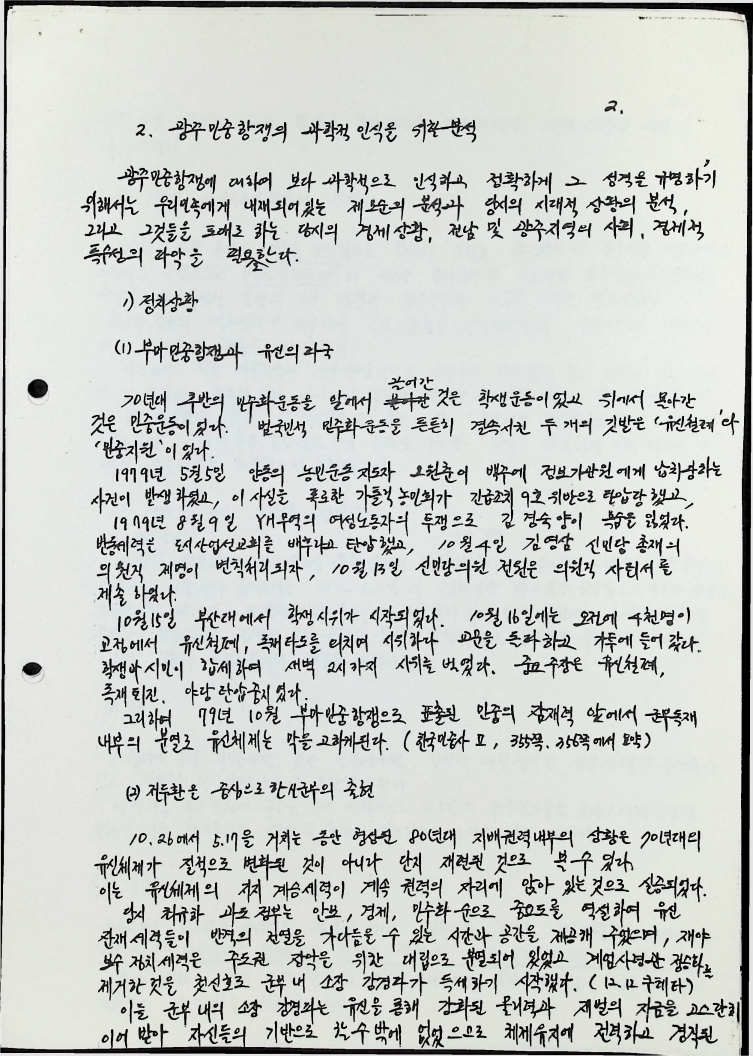 2.
2. 광주민중항쟁의 과학적 인식을 위한 분석
광주민중항쟁에 대하여 보다 과학적으로 인식하고 정확하게 그 성격을 규명하기
위해서는 우리민족에게 내재되어있는 제모순의 분석과 당시의 시대적 상황의 분석,
그리고 그것들을 토대로 하는 당시의 경제상황, 전남 및 광주지역의 사회, 경제적
특수성의 파악을 필요로한다.
1) 정치상황
(1) 부마민중항쟁과 유신의 파국
70년대 후반의 민주화운동을 앞에서 끌어간 것은 학생운동이었고 뒤에서 몰아간
것은 민중운동이었다. 범국민적 민주화운동을 튼튼히 결속시킨 두 개의 깃발은 '유신철폐'와
'민중지원'이었다.
1979년 5월5일 안동의 농민운동지도자 오원춘이 백주에 정보기관원에게 납치당하는
사건이 발생하였고, 이 사실을 폭로한 가톨릭농민회가 긴급조치 9호 위반으로 탄압당했고,
1979년 8월 9일 YH무역의 여성노동자의 투쟁으로 김경숙양이 목숨을 잃었다.
반동세력은 도시산업선교회를 배후라고 탄압했고, 10월 4일 김영삼 신민당 총재의
의원직 제명이 변칙처리되자, 10월 13일 신민당의원 전원은 의원직 사퇴서를
제출하였다.
10월 15일 부산대에서 학생시위가 시작되었다. 10월 16일에는 오전에 4천명이
교정에서 유신철폐, 독재타도를 외치며 시위하다 교문을 돌파하고 가두에 들어갔다.
학생과 시민이 합세하여 새벽 2시까지 시위를 벌였다. 주요주장은 유신철폐,
독재퇴진, 야당탄압중지였다.
그리하여 79년 10월 부마민중항쟁으로 표출된 민중의 잠재력 앞에서 군부독재
내부의 분열로 유신체제는 막을 고하게된다. (한국민중사 II, 355쪽, 356쪽에서 요약)
(2) 전두환을 중심으로한 신군부의 출현
10.26에서 5.17을 거치는 동안 형성된 80년대 지배권력내부의 상황은 70년대의
유신체제가 질적으로 변화된 것이 아니라 단지 재편된 것으로 볼 수 있다.
이는 유신체제의 저자 계승세력이 계속 권력의 자리에 앉아 있는것으로 실증되었다.
당시 최규하 과도정부는 안보, 경제, 민주화 순으로 중요도를 역설하여 유신
잔재세력들이 반격의 전열을 가다듬을 수 있는 시간과 공간을 제공해 주었으며, 재야
보수정치세력은 주도권 장악을 위한 대립으로 분열되어 있었고 계엄사령관 정승화를
제거한것을 첫신호로 군부내 소장 강경파가 득세하기 시작했다. (12.12 쿠데타)
이들 군부내의 소장 강경파는 유신을 통해 강화된 물리력과 재벌의 자금을 고스란히
이어받아 자신들의 기반으로 할수밖에 없었으므로 체제유지에 전력하고 경직된